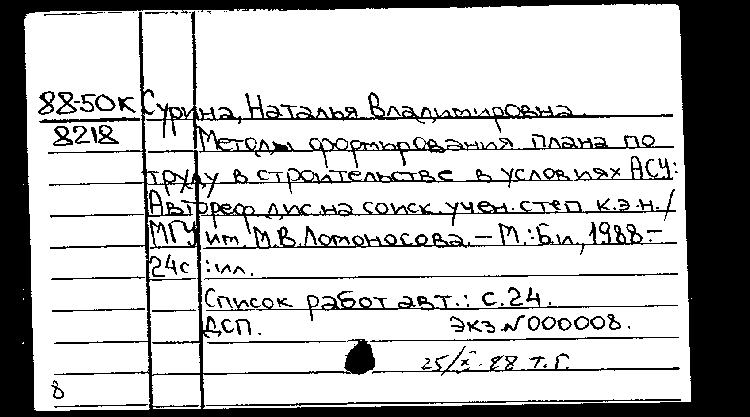 88-50К Сурина, Наталья Владимировна.
8218 Методы формирования плана по
труду в строительстве в условиях АСУ:
Автореф. дис. на соиск. учен. степ. к.э.н. /
МГУ им. М.В.Ломоносова. – М.: Б.и., 1988.–
24с. : ил.
Список работ авт.: с.24.
ДСП. Экз №000008.
25/X-88 т.г.
8